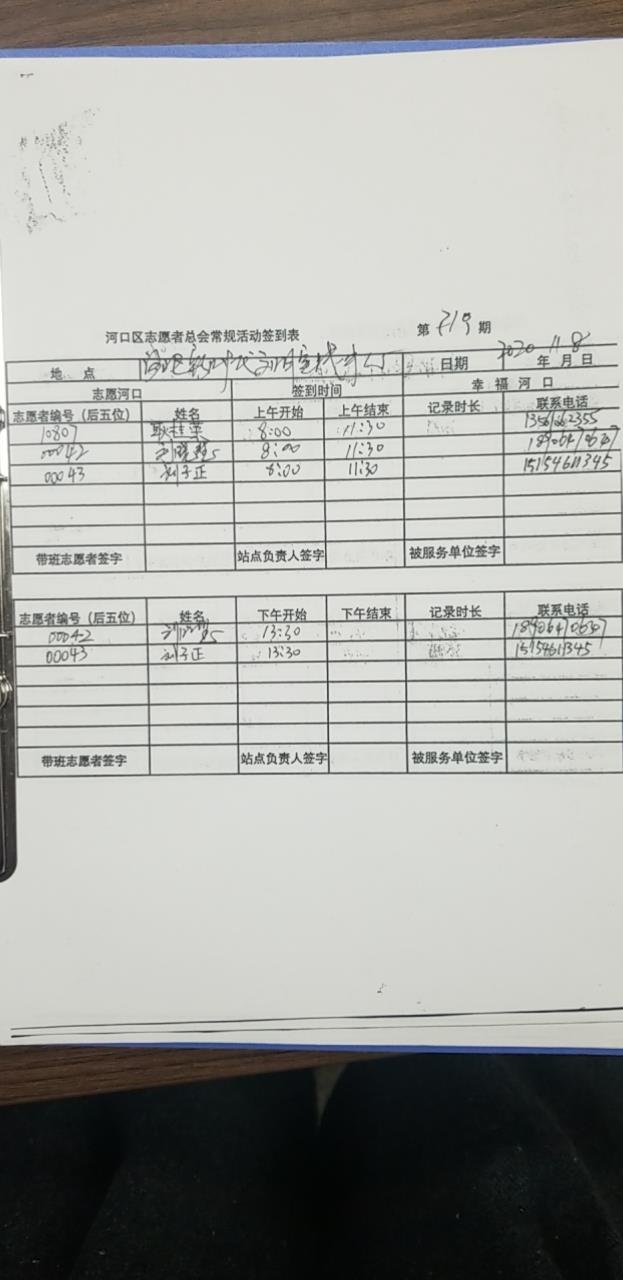 河口区志愿者总会常规活动签到表 第 319 期
地 点 日期 2020 11.8 年 月 日
志愿河口 签到时间 幸 福 河 口
志愿者编号（后五位） 姓名 上午开始 上午结束 记录时长 联系电话
10807 耿桂英 8:00 11:30
00042 8:00 11:30
00043 刘子正 8:00 11:30 15154611345
带班志愿者签字 站点负责人签字 被服务单位签字
志愿者编号（后五位） 姓名 下午开始 下午结束 记录时长 联系电话
00042 13:30
00043 刘子正 13:30 15154611345
带班志愿者签字 站点负责人签字 被服务单位签字